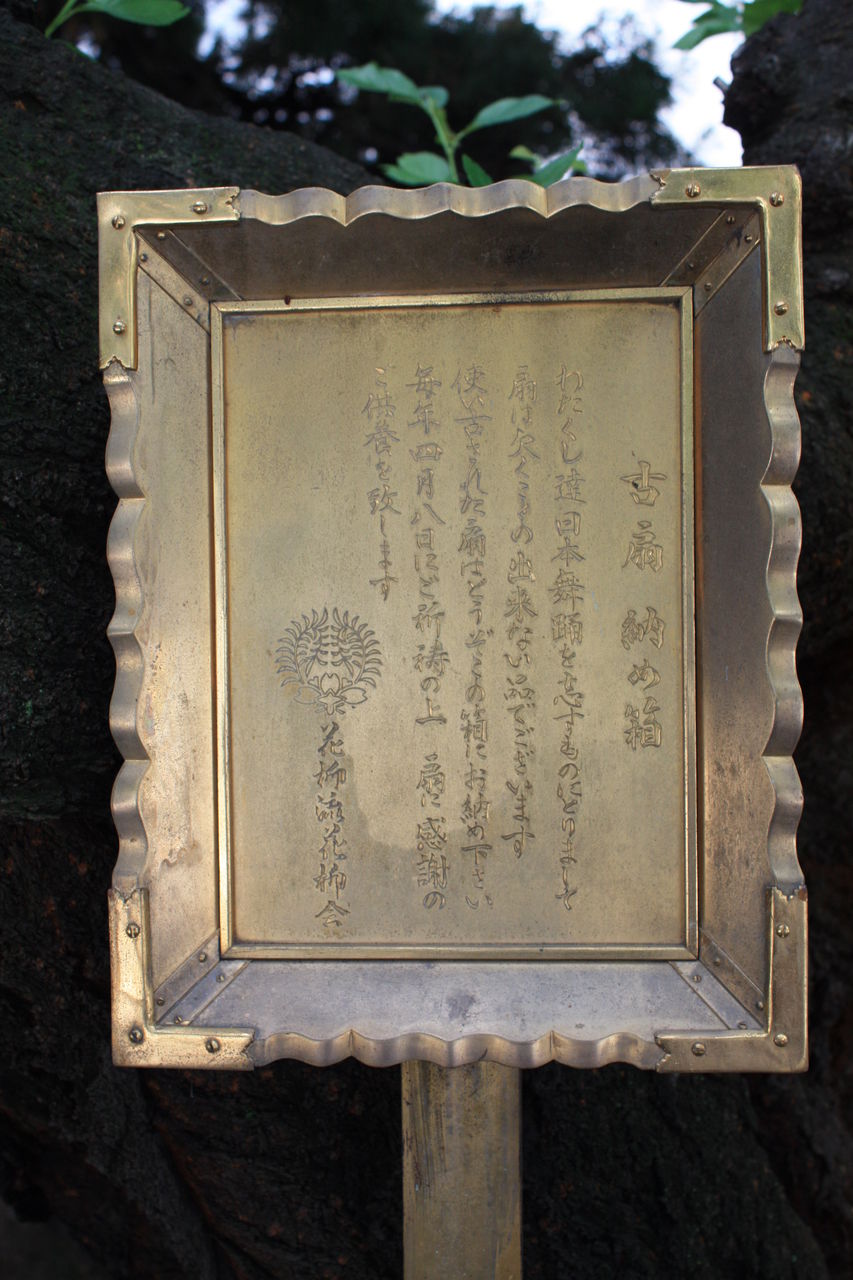 古扇納め箱
わたくし達日本舞踊を志すものにとりまして
扇は欠くことの出来ない品でございます
使い古された扇はどうぞこの箱にお納め下さい
毎年四月八日にご祈祷の上 扇に感謝の
ご供養を致します
花柳流花柳会